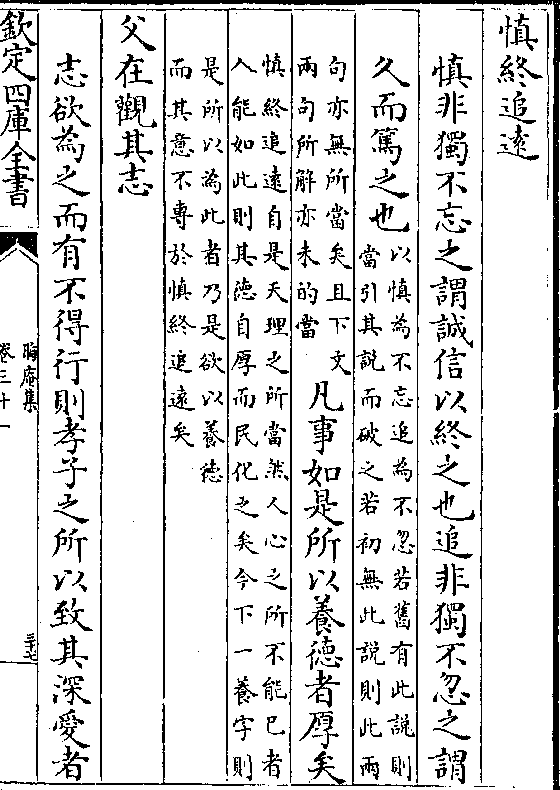 慎終追遠
慎非獨不忘之謂誠信以終之也追非獨不忽之謂
久而篤之也
以慎為不忘追為不忽若舊有此説則
當引其説而破之若初無此説則此兩
句亦無所當矣且下文
兩句所解亦未的當
凡事如是所以養德者厚矣
慎終追遠自是天理之所當然人心之所不能已者
人能如此則其德自厚而民化之矣今下一養字則
是所以為此者乃是欲以養德
而其意不專於慎終追遠矣
父在觀其志
志欲為之而有不得行則孝子之所以致其深愛者
欽定四庫全書
晦庵集
卷三十一
三十七